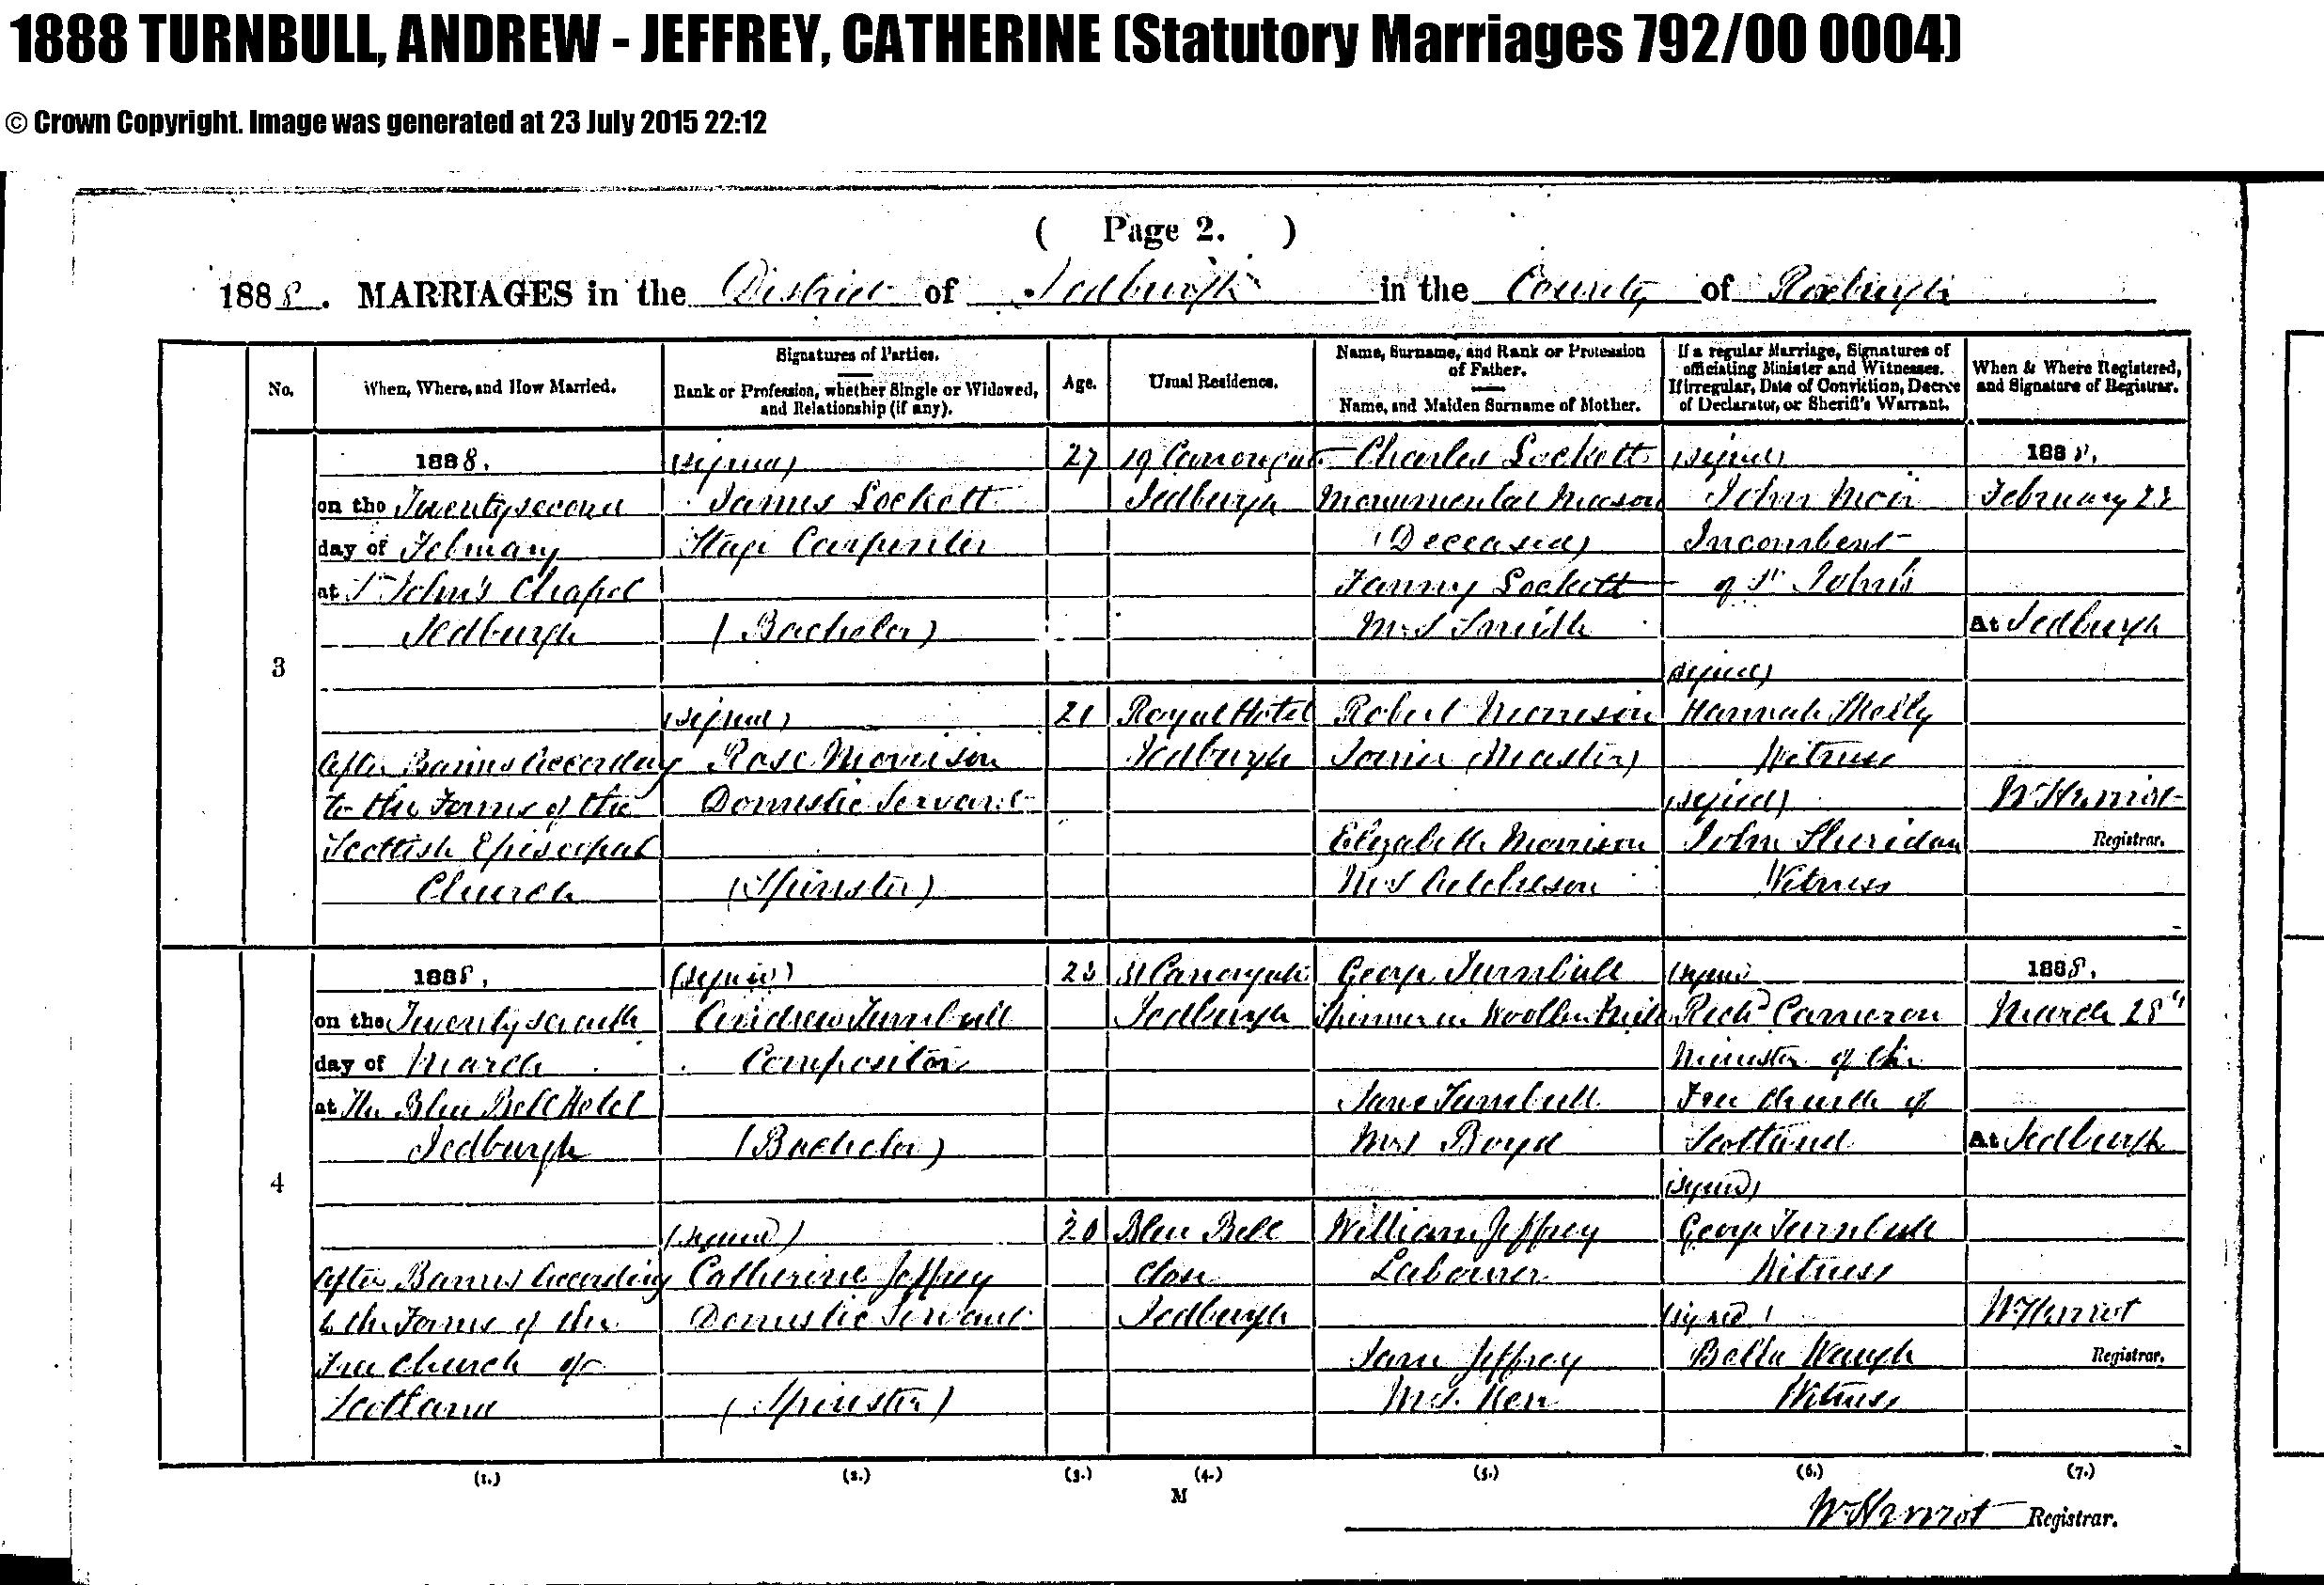 1888 TURNBULL, ANDREW - JEFFREY, CATHERINE (Statutory Marriages 792/00 0004)
© Crown Copyright. Image was generated at 23 July 2015 22:12
( Page 2. )
1888. MARRIAGES in the District of Jedburgh in the County of Roxburgh
No.
When, Where, and How Married.
Signatures of Parties.
Rank or Profession, whether Single or Widowed,
and Relationship (if any).
Age.
Usual Residence.
Name, Surname, and Rank or Profession
of Father.
Name, and Maiden Surname of Mother.
If a regular Marriage, Signatures of
officiating Minister and Witnesses.
If irregular, Date of Conviction, Decree
of Declarator, or Sheriff's Warrant.
When & Where Registered,
and Signature of Registrar.
3
1888.
on the Twentysecond
day of February
at St John's Chapel
Jedburgh
After Banns According
to the Forms of the
Scottish Episcopal
Church
(signed)
James Lockett
Stage Carpenter
(Bachelor)
(signed)
Rose Morrison
Domestic Servant
(Spinster)
27
21
19 Canongate
Jedburgh
Royal Hotel
Jedburgh
Charles Lockett
Monumental Mason
(Deceased)
Fanny Lockett
M.S Smith
Robert Morrison
Joiner (Master)
Elizabeth Morrison
M.S Aitchison
(signed)
John Moir
Incumbent
of St John's
(signed)
Hannah Skelly
Witness
(signed)
John Sheridan
Witness
1888.
February
At Jedburgh
W Herriot
Registrar.
4
1888.
on the Twentyseventh
day of March
at The Blue Bell Hotel
Jedburgh
After Banns According
to the Forms of the
Free Church of
Scotland
(signed)
Andrew Turnbull
Compositor
(Bachelor)
(signed)
Catherine Jeffrey
Domestic Servant
(Spinster)
20
Canongate
Jedburgh
Blue Bell
Close
Jedburgh
George Turnbull
Spinner in Woollen Mill
Jane Turnbull
M.S Boyd
William Jeffrey
Labourer
Jane Jeffrey
M.S. Kerr
(signed)
Richd Cameron
Minister of the
Free Church of
Scotland
(signed)
George Turnbull
Witness
(signed)
Bella Waugh
Witness
1888.
March 28th
At Jedburgh
W Herriot
Registrar.
(1.) (2.) (3.) (4.) (5.) (6.) (7.)
M
W Herriot Registrar.